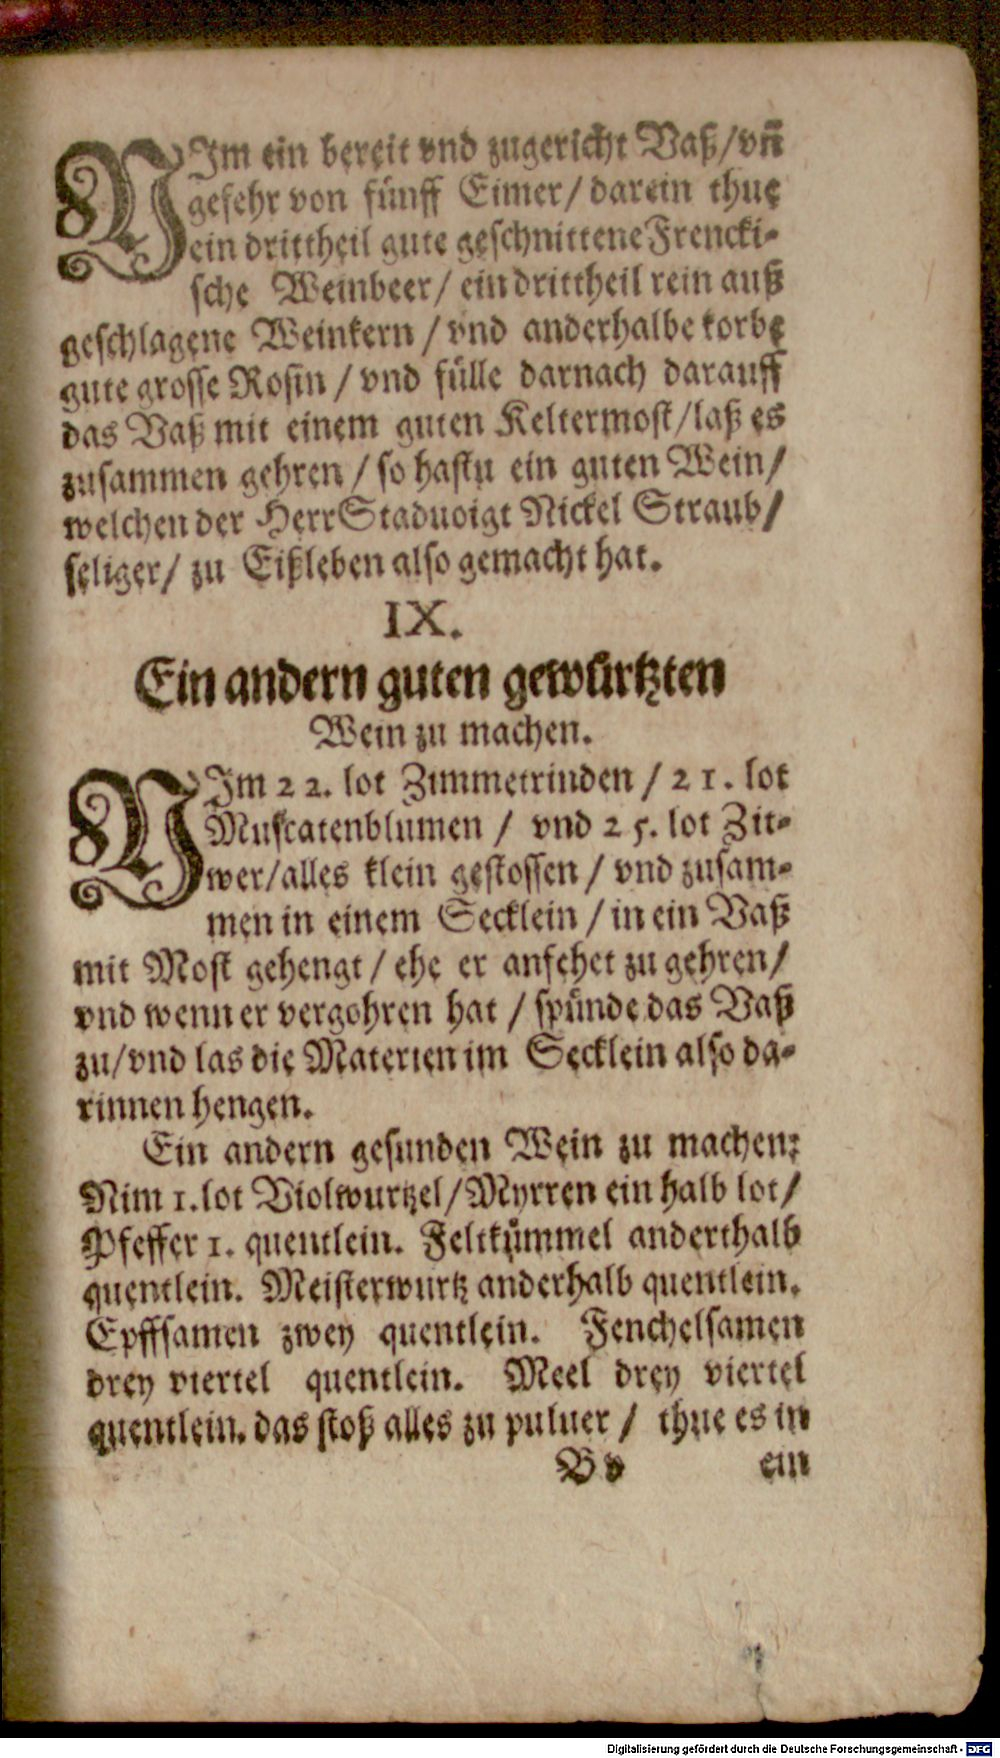 NIm ein bereit vnd zugericht Vaß/vñ
gefehr von fünff Eimer/ darein thue
ein drittheil gute geschnittene Frencki-
sche Weinbeer/ ein drittheil rein auß
geschlagene Weinkern / vnd anderhalbe korbe
gute grosse Rosin / vnd fülle darnach darauff
das Vaß mit einem guten Keltermost/laß es
zusammen gehren / so hastu ein guten Wein/
welchen der Herr Staduoigt Nickel Straub/
seliger/ zu Eißleben also gemacht hat.
IX.
Ein andern guten gewürtzten
Wein zu machen.
NIm 22. lot Zimmetrinden / 21. lot
Muscatenblumen / vnd 25. lot Zit-
wer/alles klein gestossen / vnd zusam-
men in einem Secklein / in ein Vaß
mit Most gehengt / ehe er anfehet zu gehren/
vnd wenn er vergohren hat / spünde das Vaß
zu/vnd las die Materien im Secklein also da-
rinnen hengen.
Ein andern gesunden Wein zu machen:
Nim 1. lot Violwurtzel/Myrren ein halb lot/
Pfeffer 1. quentlein. Feltkümmel anderthalb
quentlein. Meisterwurtz anderhalb quentlein.
Epffsamen zwey quentlein. Fenchelsamen
drey viertel quentlein. Meel drey viertel
quentlein. das stoß alles zu puluer / thue es in
B v ein
Digitalisierung gefördert durch die Deutsche Forschungsgemeinschaft - DFG